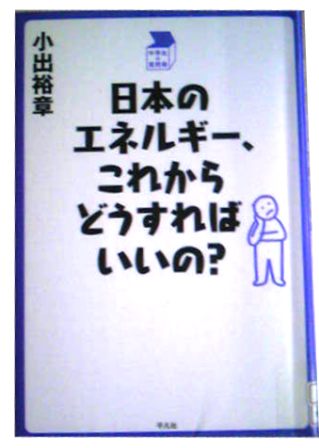 小出裕章
中学生の
質問箱
日本の
エネルギー、
これから
どうすれば
いいの?
平凡社